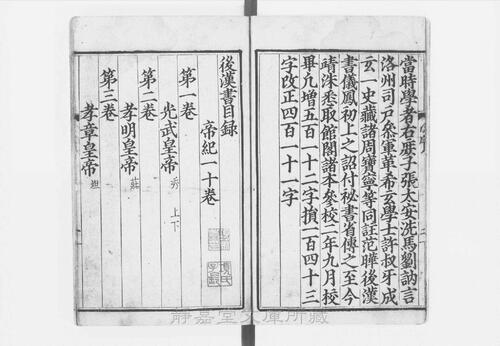 當時學者右庶子張太安洗馬劉訥言
洛州司戶參軍革希玄學士許叔牙成
玄一史藏諸周寶寧等同註范曄後漢
書儀鳳初上之詔付秘書省傳之至今
靖洙悉取館閣諸本參校二年九月校
畢凡增五百一十二字損一百四十三
字改正四百一十一字
後漢書目録
帝紀一十卷
第一卷
光武皇帝 秀 上下
第二卷
孝明皇帝 莊
第三卷
孝章皇帝 炟
靜嘉堂文庫所藏